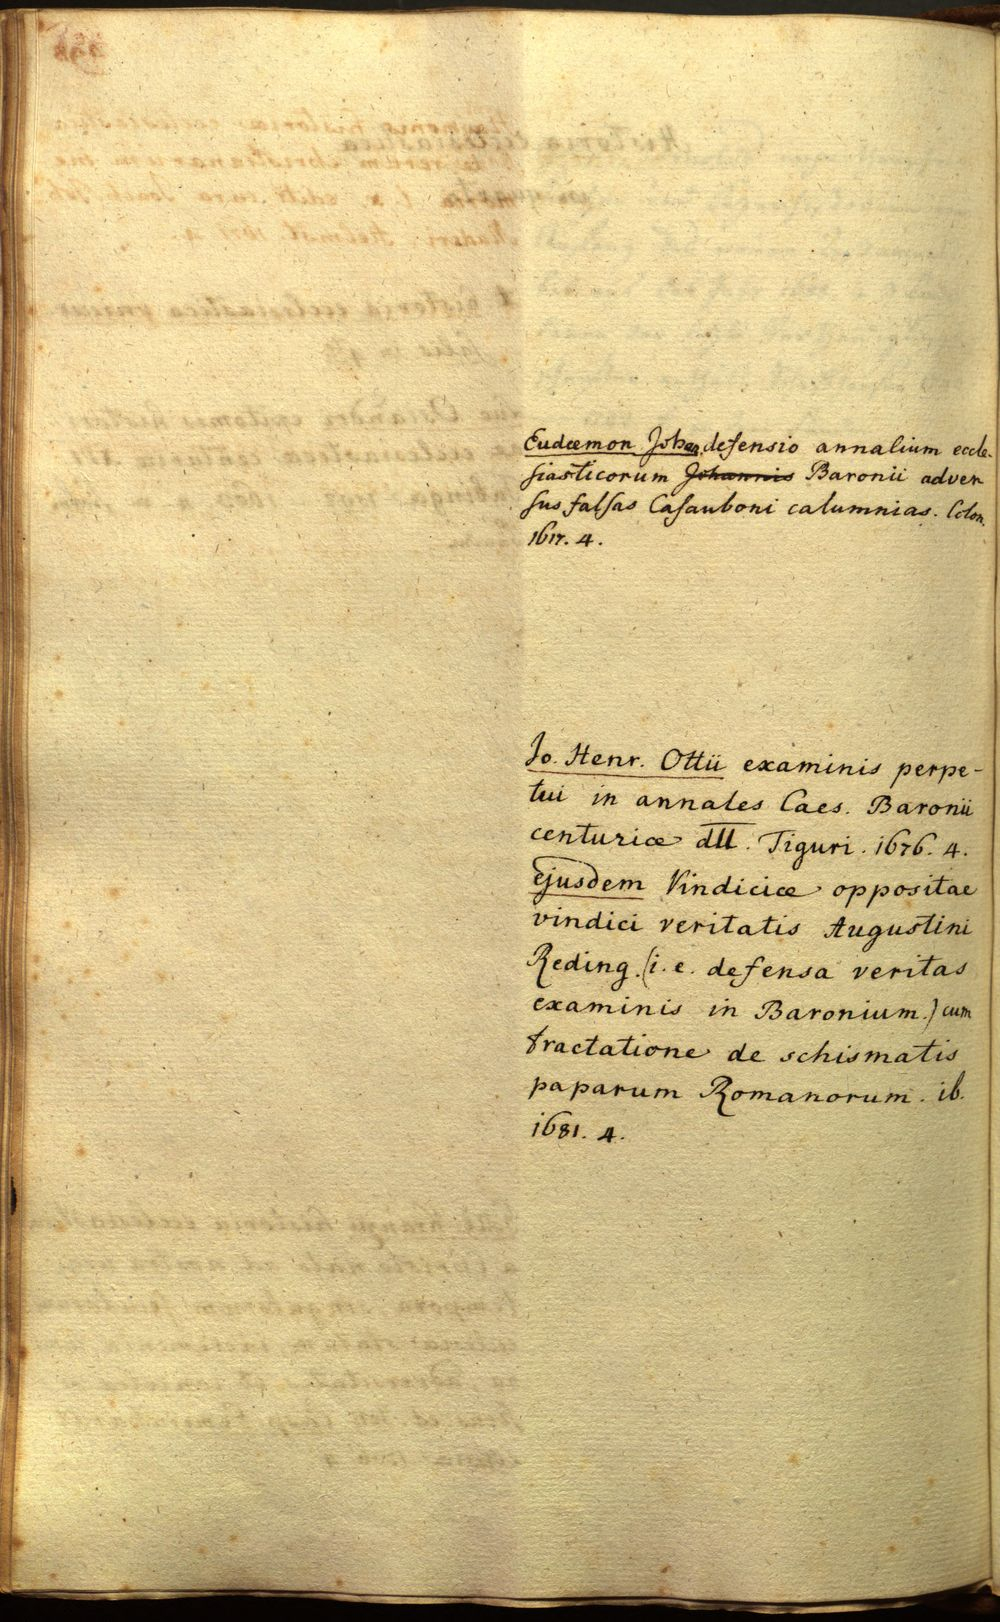 Eudæmon Johan. defensio annalium eccle-
siasticorum Johannis Baronii adver
sus falsas Casauboni calumnias. Colon.
1617. 4.
Jo. Henr. Ottii examinis perpe-
tui in annales Caes. Baronii
centuriæ Tiguri. 1676. 4.
ejusdem Vindiciæ oppositae
vindici veritatis Augustini
Reding. (i. e. defensa veritas
examinis in Baronium.) cum
tractatione de schismatis
paparum Romanorum. ib.
1681. 4.